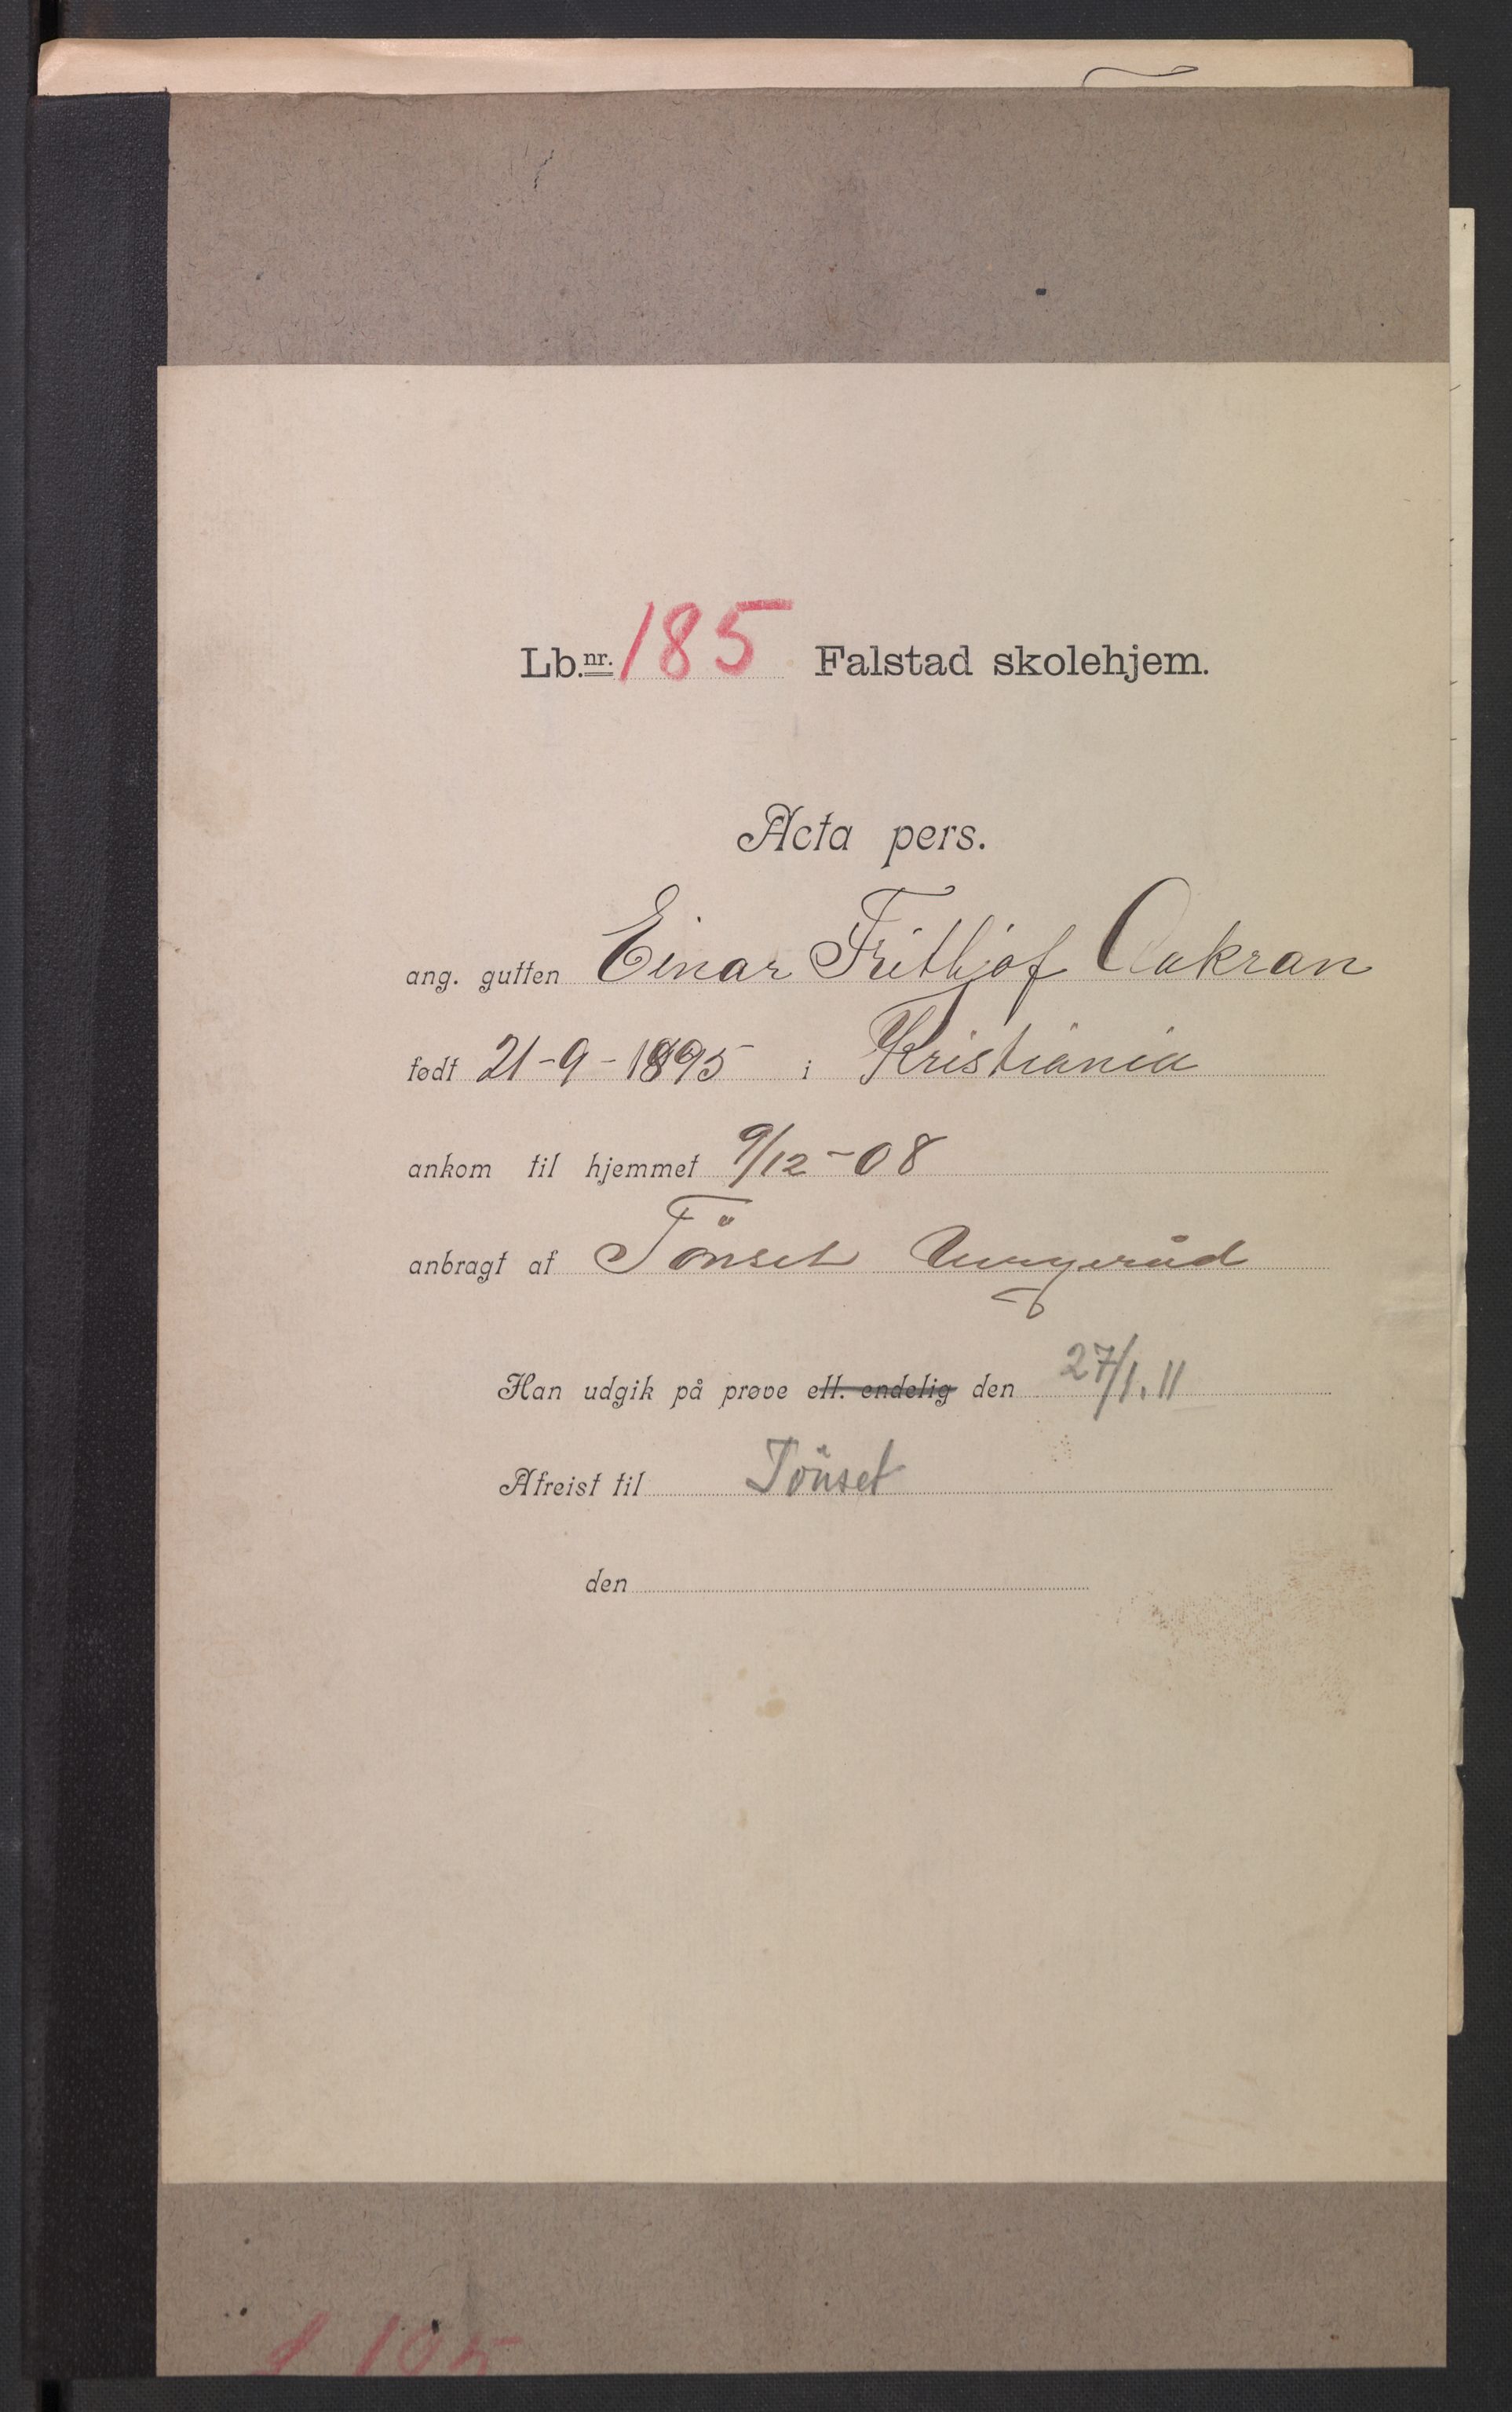 Lb.nr. 185 Falstad skolehjem.
Acta pers.
ang. gutten Einar Frithjof Aakran
født 21-9-1895 i Kristiania
ankom til hjemmet 9/12-08
anbragt af Tönset Vergeråd
Han udgik på prøve ell. endelig den 27/1.11
Afreist til Tönset
den